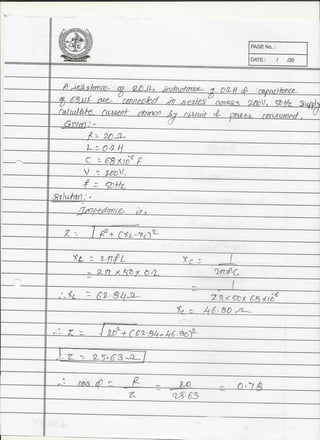 PAGE No. :
DATE : / /20
A resistance of 20Ω, inductance of 0.2H & capacitance
of 68µF are connected in series across 200V, 50Hz supply
calculate current drawn by circuit & power consumed.
Given :-
R = 20Ω
L = 0.2H
C = 68×10⁻⁶ F
V = 200V
f = 50Hz
Solution :-
Impedance is,
Z = √R²+(XL-XC)²
XL = 2πfL XC = 1/2πfC
= 2π×50×0.2 = 1/2π×50×68×10⁻⁶
∴ XL = 62.84Ω XC = 46.90Ω
∴ Z = √20²+(62.84-46.90)²
∴ Z = 25.63Ω
∴ cos φ = R/Z = 20/25.63 = 0.78